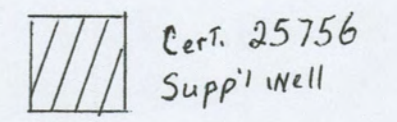 Cert. 25756
Supp'l Well